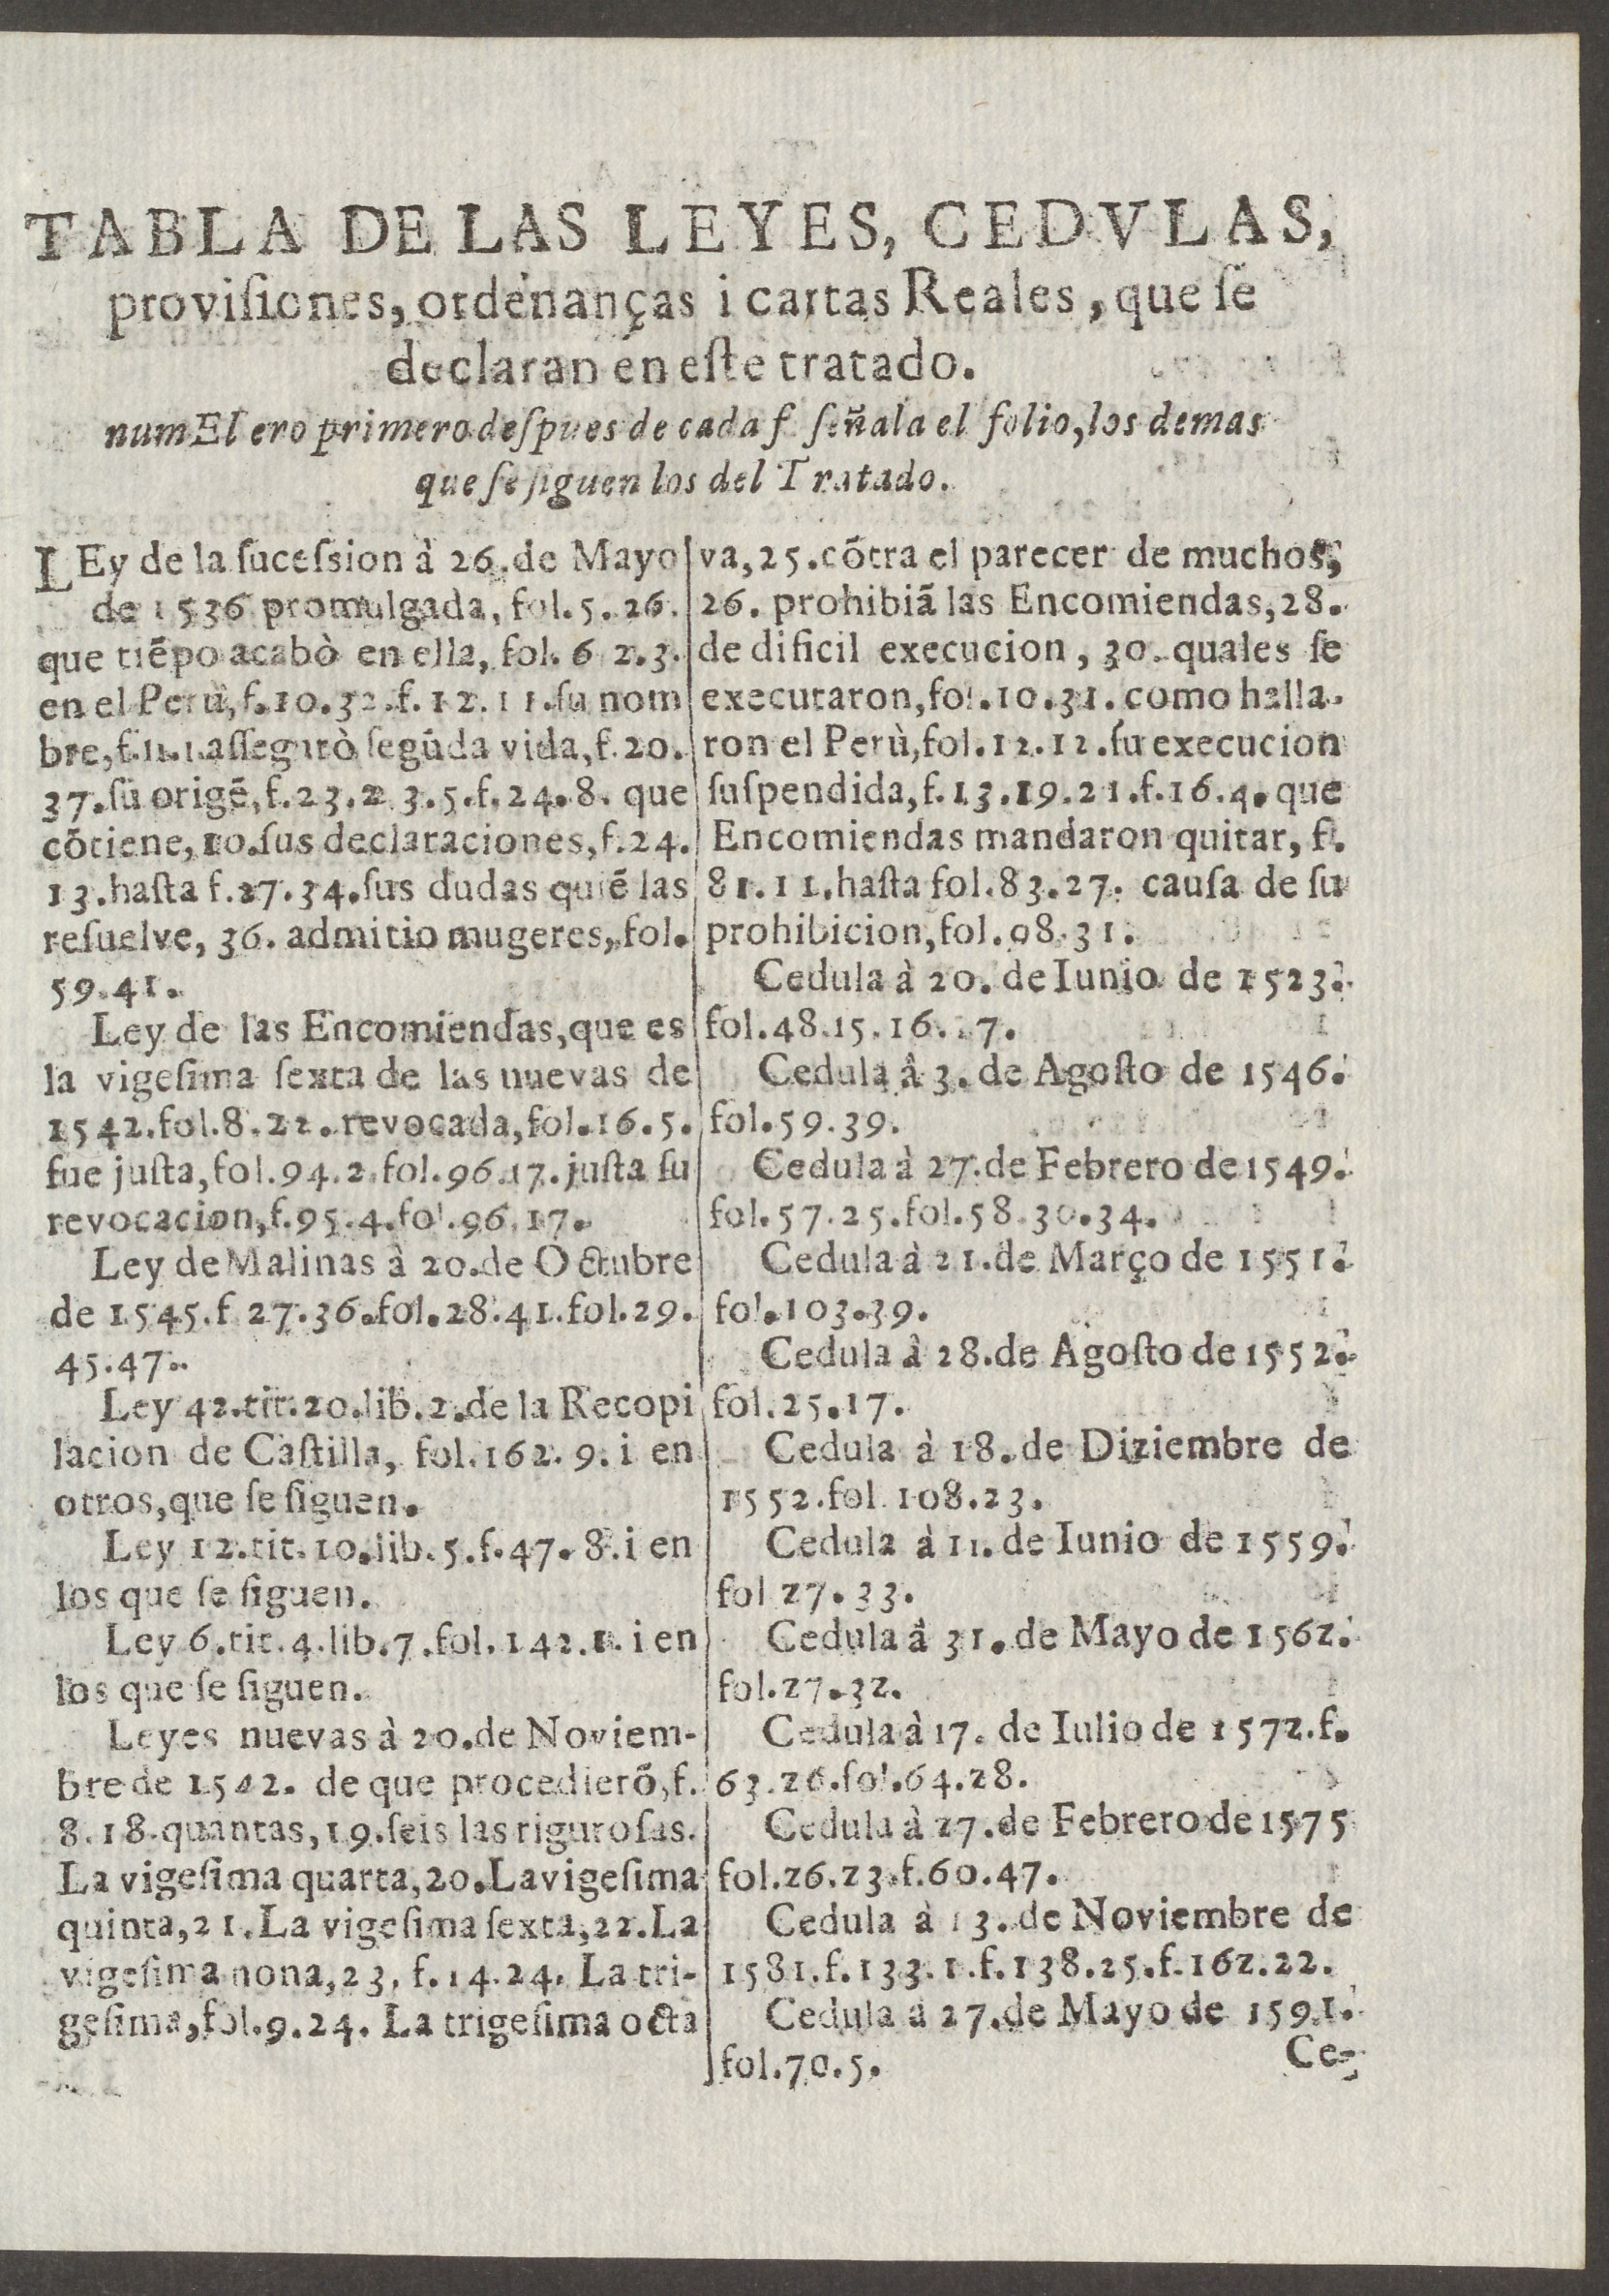 TABLA DE LAS LEYES, CEDVLAS,
proviſiones, ordenanças i cartas Reales, que ſe
declaran en eſte tratado.
numEl ero primero deſpues de cada f ſeñala el folio, los demas
que ſe ſiguen los del Tratado.
LEy de la ſuceſsion à 26. de Mayo
de 1536 promulgada, fol. 5. 26.
que tiẽpo acabò en ella, fol. 6 2. 3.
en el Perù, f. 10. 32. f. 12. 11. ſu nom
bre, f. 11. 1. aſſegurò ſegũda vida, f. 20.
37. ſu origẽ, f. 23. 2. 3. 5. f. 24. 8. que
cõtiene, 10. ſus declaraciones, f. 24.
13. haſta f. 27. 34. ſus dudas quiẽ las
reſuelve, 36. admitio mugeres, fol.
59. 41.
Ley de las Encomiendas, que es
la vigeſima ſexta de las nuevas de
1542. fol. 8. 22. revocada, fol. 16. 5.
fue juſta, fol. 94. 2. fol. 96. 17. juſta ſu
revocacion, f. 95. 4. fol. 96. 17.
Ley de Malinas à 20. de Octubre
de 1545. f 27. 36. fol. 28. 41. fol. 29.
45. 47.
Ley 42. tit. 20. lib. 2. de la Recopi
lacion de Caſtilla, fol. 162. 9. i en
otros, que ſe ſiguen.
Ley 12. tit. 10. lib. 5. f. 47. 8. i en
los que ſe ſiguen.
Ley 6. tit. 4. lib. 7. fol. 142. 1. i en
los que ſe ſiguen.
Leyes nuevas à 20. de Noviem-
bre de 1542. de que procedierõ, f.
8. 18. quantas, 19. ſeis las riguroſas.
La vigeſima quarta, 20. La vigeſima
quinta, 21. La vigeſima ſexta, 22. La
vigeſima nona, 23. f. 14. 24. La tri-
geſima, fol. 9. 24. La trigeſima octa
va, 25. cõtra el parecer de muchos,
26. prohibiã las Encomiendas, 28.
de dificil execucion, 30. quales ſe
executaron, fol. 10. 31. como halla-
ron el Perù, fol. 12. 12. ſu execucion
ſuſpendida, f. 13. 19. 21. f. 16. 4. que
Encomiendas mandaron quitar, f.
81. 11. haſta fol. 83. 27. cauſa de ſu
prohibicion, fol. 98. 31.
Cedula à 20. de Iunio de 1523.
fol. 48. 15. 16. 7.
Cedula à 3. de Agoſto de 1546.
fol. 59. 39.
Cedula à 27. de Febrero de 1549.
fol. 57. 25. fol. 58. 30. 34.
Cedula à 21. de Março de 1551.
fol. 103. 39.
Cedula à 28. de Agoſto de 1552.
fol. 25. 17.
Cedula à 18. de Diziembre de
1552. fol. 108. 23.
Cedula à 11. de Iunio de 1559.
fol 27. 33.
Cedula à 31. de Mayo de 1562.
fol. 27. 32.
Cedula à 17. de Iulio de 1572. f.
63. 26. fol. 64. 28.
Cedula à 27. de Febrero de 1575
fol. 26. 23. f. 60. 47.
Cedula à 13. de Noviembre de
1581. f. 133. 1. f. 138. 25. f. 162. 22.
Cedula à 27. de Mayo de 1591.
fol. 70. 5.
Ce-